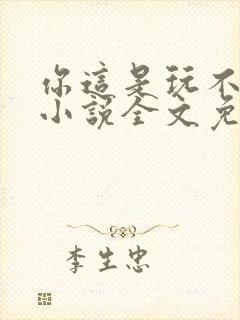 你這是玩不
小說全文免
李生忠